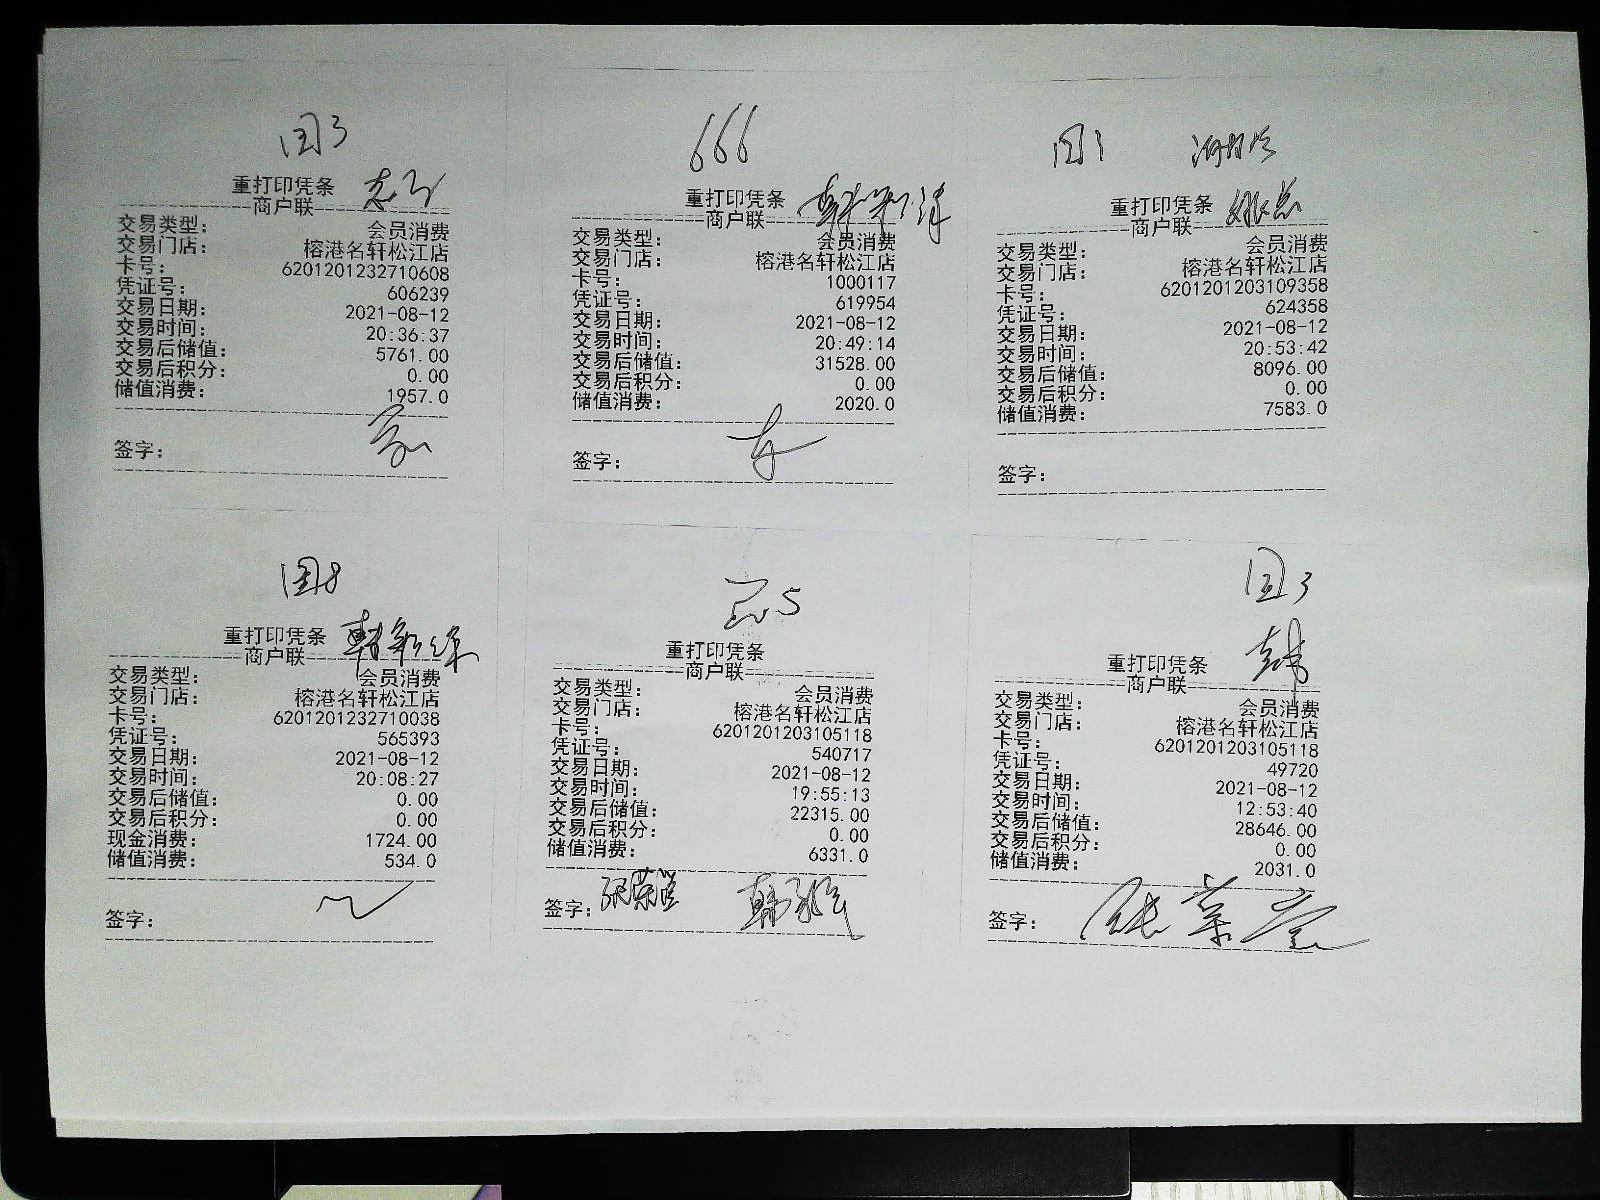 国3
重打印凭条
商户联
交易类型： 会员消费
交易门店： 榕港名轩松江店
卡号： 6201201232710608
凭证号： 606239
交易日期： 2021-08-12
交易时间： 20:36:37
交易后储值： 5761.00
交易后积分： 0.00
储值消费： 1957.0
签字：
666
重打印凭条
商户联
交易类型： 会员消费
交易门店： 榕港名轩松江店
卡号： 1000117
凭证号： 619954
交易日期： 2021-08-12
交易时间： 20:49:14
交易后储值： 31528.00
交易后积分： 0.00
储值消费： 2020.0
签字：
国1
重打印凭条
商户联
交易类型： 会员消费
交易门店： 榕港名轩松江店
卡号： 6201201203109358
凭证号： 624358
交易日期： 2021-08-12
交易时间： 20:53:42
交易后储值： 8096.00
交易后积分： 0.00
储值消费： 7583.0
签字：
国8
重打印凭条
商户联
交易类型： 会员消费
交易门店： 榕港名轩松江店
卡号： 6201201232710038
凭证号： 565393
交易日期： 2021-08-12
交易时间： 20:08:27
交易后储值： 0.00
交易后积分： 0.00
现金消费： 1724.00
储值消费： 534.0
签字：
5
重打印凭条
商户联
交易类型： 会员消费
交易门店： 榕港名轩松江店
卡号： 6201201203105118
凭证号： 540717
交易日期： 2021-08-12
交易时间： 19:55:13
交易后储值： 22315.00
交易后积分： 0.00
储值消费： 6331.0
签字：
国3
韩
重打印凭条
商户联
交易类型： 会员消费
交易门店： 榕港名轩松江店
卡号： 6201201203105118
凭证号： 49720
交易日期： 2021-08-12
交易时间： 12:53:40
交易后储值： 28646.00
交易后积分： 0.00
储值消费： 2031.0
签字：